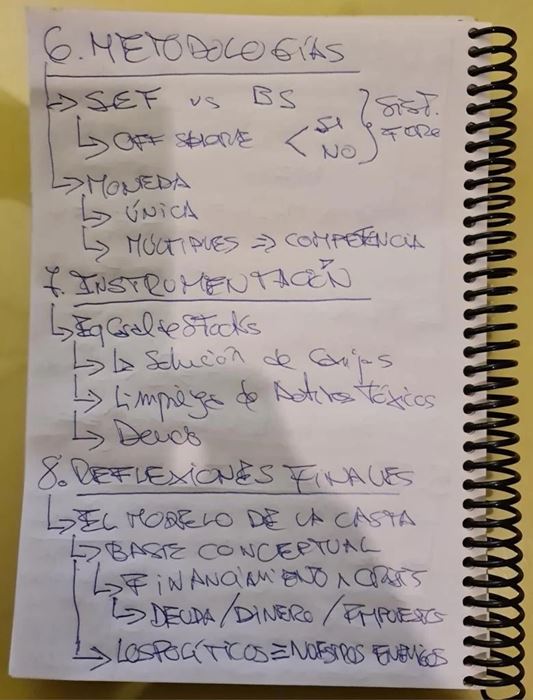 6. METODOLOGÍAS
↳ SEF vs BS
↳ OFF SHORE < SI NO } SIST. FORE
↳ MONEDA
↳ ÚNICA
↳ MÚLTIPLES ⇒ COMPETENCIA
7. INSTRUMENTACIÓN
↳ Eq Gral de Stocks
↳ La Solución de
↳ Limpieza de Activos Tóxicos
↳ Deuda
8. REFLEXIONES FINALES
↳ EL MODELO DE LA CASTA
↳ BASE CONCEPTUAL
↳ FINANCIAMIENTO
↳ DEUDA / DINERO / IMPUESTOS
↳ LOS POLÍTICOS ≡ NUESTROS ENEMIGOS